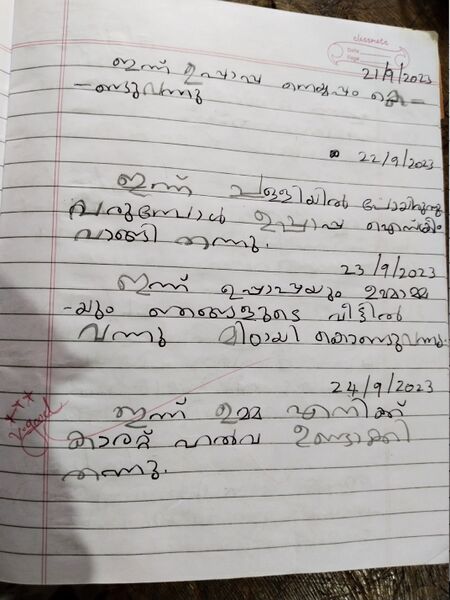 classmate
Date
Page
21/9/2023
ഇന്ന് ഉപ്പാപ്പ നെയ്യപ്പം കൊ-
-ണ്ടുവന്നു
22/9/2023
ഇന്ന് പള്ളിയിൽ പോയിരുന്നു
വരുമ്പോൾ ഉപ്പാപ്പ ഐസ്ക്രീം
വാങ്ങി തന്നു.
23/9/2023
ഇന്ന് ഉപ്പാപ്പയും ഉമ്മാമ്മ
-യും ഞങ്ങളുടെ വീട്ടിൽ
വന്നു മിഠായി കൊണ്ടുവന്നു.
24/9/2023
ഇന്ന് ഉമ്മ എനിക്ക്
കാരറ്റ് ഹൽവ ഉണ്ടാക്കി
തന്നു.
V.good